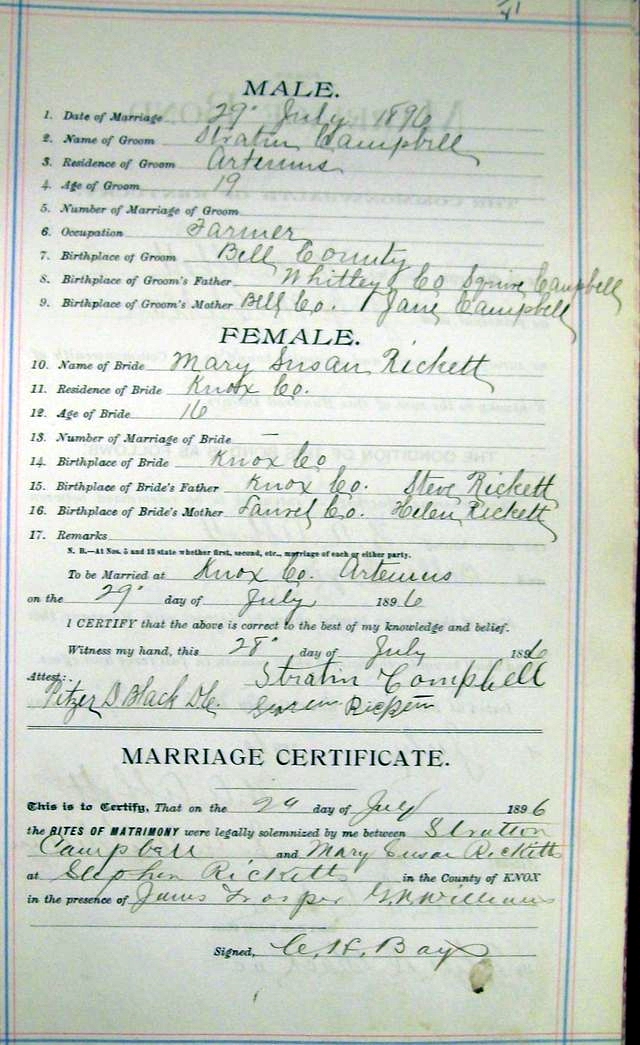 41
MALE.
1. Date of Marriage 29" July 1896
2. Name of Groom Stratin Campbell
3. Residence of Groom Artemus
4. Age of Groom 19
5. Number of Marriage of Groom
6. Occupation Farmer
7. Birthplace of Groom Bell County
8. Birthplace of Groom's Father Whitley Co Squire Campbell
9. Birthplace of Groom's Mother Bell Co. Jane Campbell
FEMALE.
10. Name of Bride Mary Susan Rickett
11. Residence of Bride Knox Co.
12. Age of Bride 16
13. Number of Marriage of Bride —
14. Birthplace of Bride Knox Co
15. Birthplace of Bride's Father Knox Co. Steve Rickett
16. Birthplace of Bride's Mother Laurel Co. Helen Rickett
17. Remarks
N. B.—At Nos. 5 and 13 state whether first, second, etc., marriage of each or either party.
To be Married at Knox Co. Artemus
on the 29" day of July 1896
I CERTIFY that the above is correct to the best of my knowledge and belief.
Witness my hand, this 28" day of July 1896
Attest: Stratin Campbell
Pitzer D Black DC.
MARRIAGE CERTIFICATE.
This is to Certify, That on the 29 day of July 1896
the RITES OF MATRIMONY were legally solemnized by me between Stratton
Campbell and Mary Susan Ricketts
at Stephen Ricketts in the County of KNOX
in the presence of James Trosper G. N. Williams
Signed, C. H. Bays